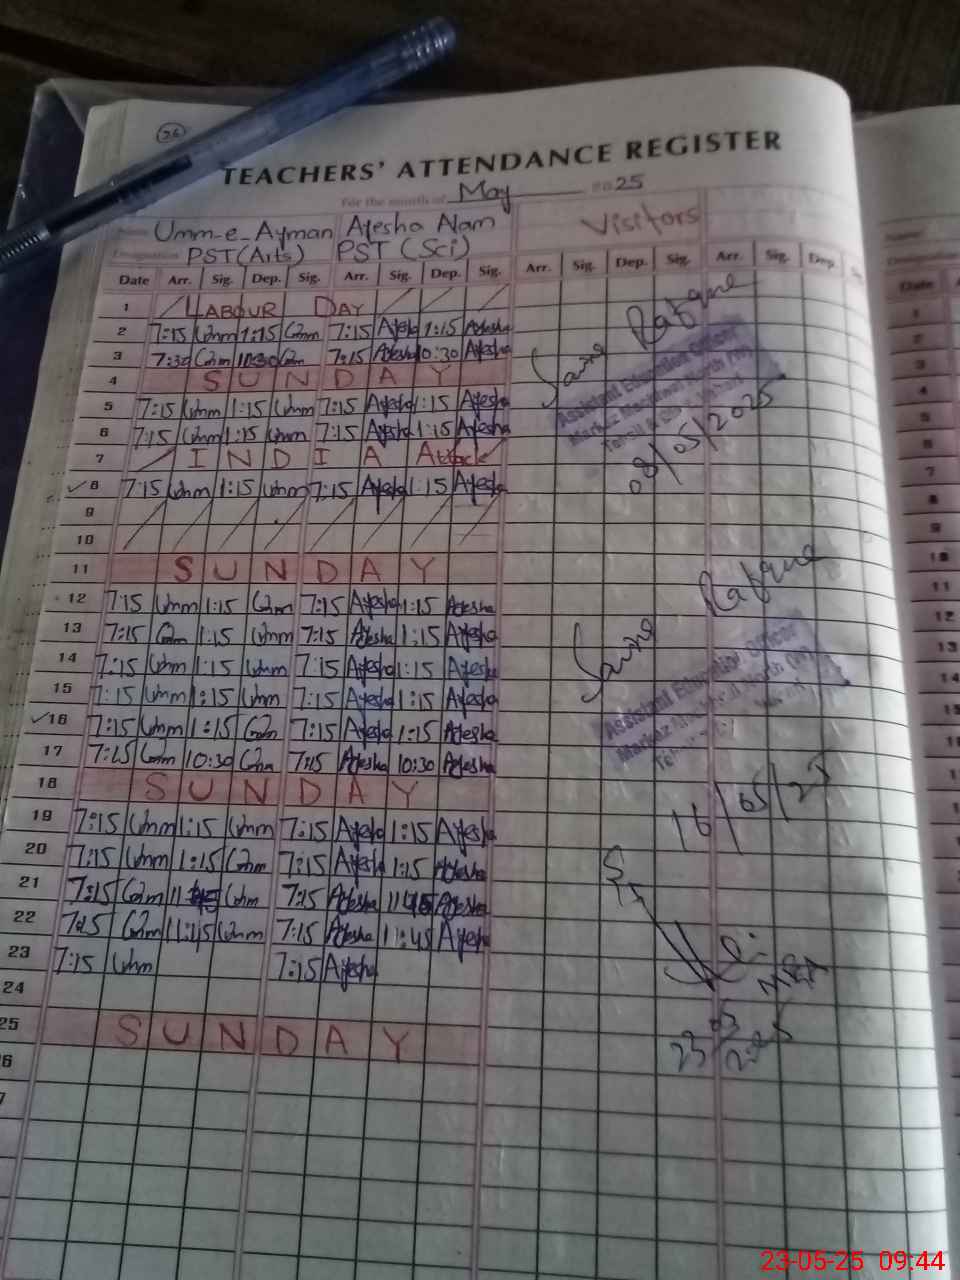 26
TEACHERS' ATTENDANCE REGISTER
For the month of May 2025
Name Umm-e-Ayman Ayesha Alam Visitors
Designation PST(Arts) PST (Sci)
Date Arr. Sig. Dep. Sig. Arr. Sig. Dep. Sig. Arr. Sig. Dep. Sig. Arr. Sig. Dep. Sig.
1 LABOUR DAY
2 7:15 Umm 1:15 Umm 7:15 Ayesha 1:15 Ayesha
3 7:30 Umm 10:30 Umm 7:15 Ayesha 10:30 Ayesha
4 SUNDAY
5 7:15 Umm 1:15 Umm 7:15 Ayesha 1:15 Ayesha
6 7:15 Umm 1:15 Umm 7:15 Ayesha 1:15 Ayesha
7 INDIA Attack
8 7:15 Umm 1:15 Umm 7:15 Ayesha 1:15 Ayesha
9
10
11 SUNDAY
12 7:15 Umm 1:15 Umm 7:15 Ayesha 1:15 Ayesha
13 7:15 Umm 1:15 Umm 7:15 Ayesha 1:15 Ayesha
14 7:15 Umm 1:15 Umm 7:15 Ayesha 1:15 Ayesha
15 7:15 Umm 1:15 Umm 7:15 Ayesha 1:15 Ayesha
16 7:15 Umm 1:15 Umm 7:15 Ayesha 1:15 Ayesha
17 7:15 Umm 10:30 Umm 7:15 Ayesha 10:30 Ayesha
18 SUNDAY
19 7:15 Umm 1:15 Umm 7:15 Ayesha 1:15 Ayesha
20 7:15 Umm 1:15 Umm 7:15 Ayesha 1:15 Ayesha
21 7:15 Umm 11:45 Umm 7:15 Ayesha 11:45 Ayesha
22 7:15 Umm 11:15 Umm 7:15 Ayesha 11:45 Ayesha
23 7:15 Umm 7:15 Ayesha
24
25 SUNDAY
Rafique
Assistant Education Officer
Markaz North (W)
08/05/2025
Rafique
Assistant Education Officer
Markaz North (W)
16/05/25
MEA
23/05/2025
Date
1
2
3
4
5
6
7
8
9
10
11
12
13
14
23-05-25 09:44